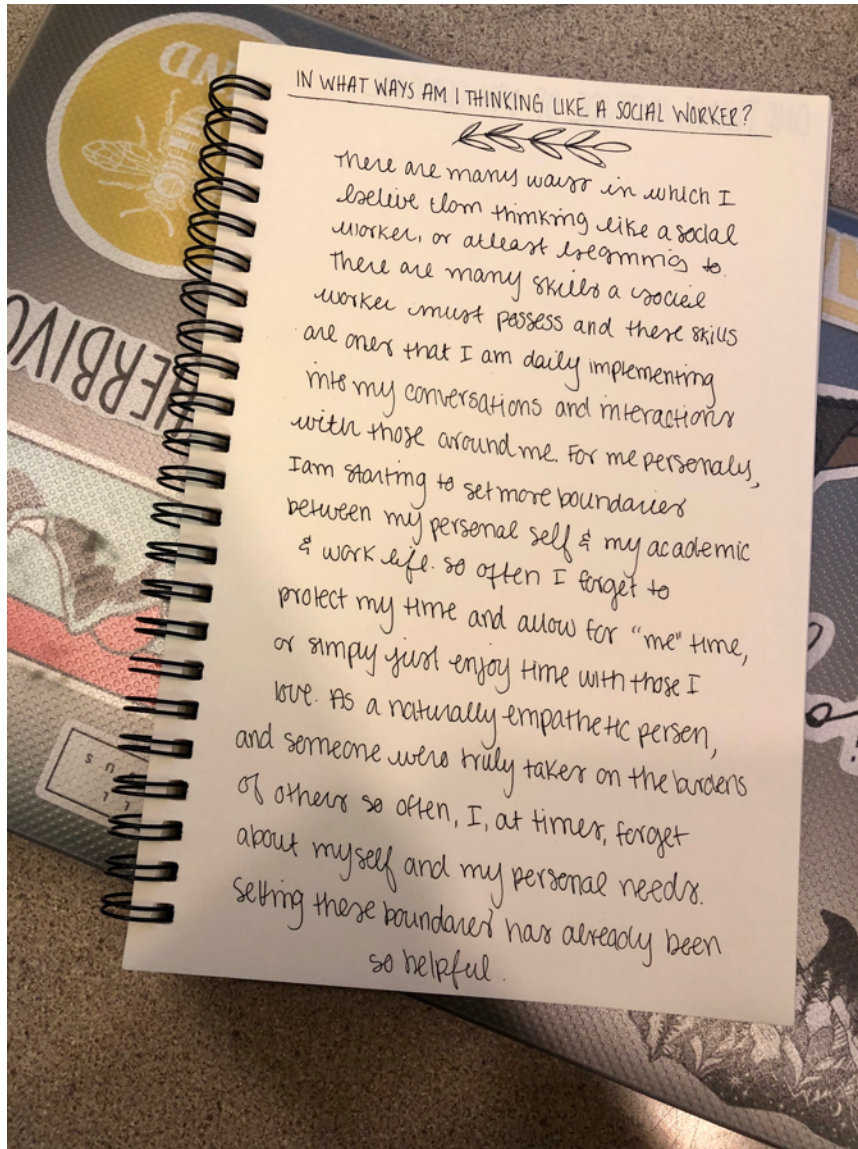 IN WHAT WAYS AM I THINKING LIKE A SOCIAL WORKER?
There are many ways in which I
beleive I am thinking like a social
worker, or atleast beginning to.
There are many skills a social
worker must possess and these skills
are ones that I am daily implementing
into my conversations and interactions
with those around me. For me personaly,
I am starting to set more boundaries
between my personal self & my academic
& work life. so often I forget to
protect my time and allow for "me" time,
or simply just enjoy time with those I
love. As a naturally empathetic person,
and someone who truly takes on the burdens
of others so often, I, at times, forget
about myself and my personal needs.
Setting these boundaries has already been
so helpful.
HERBIVO
ND